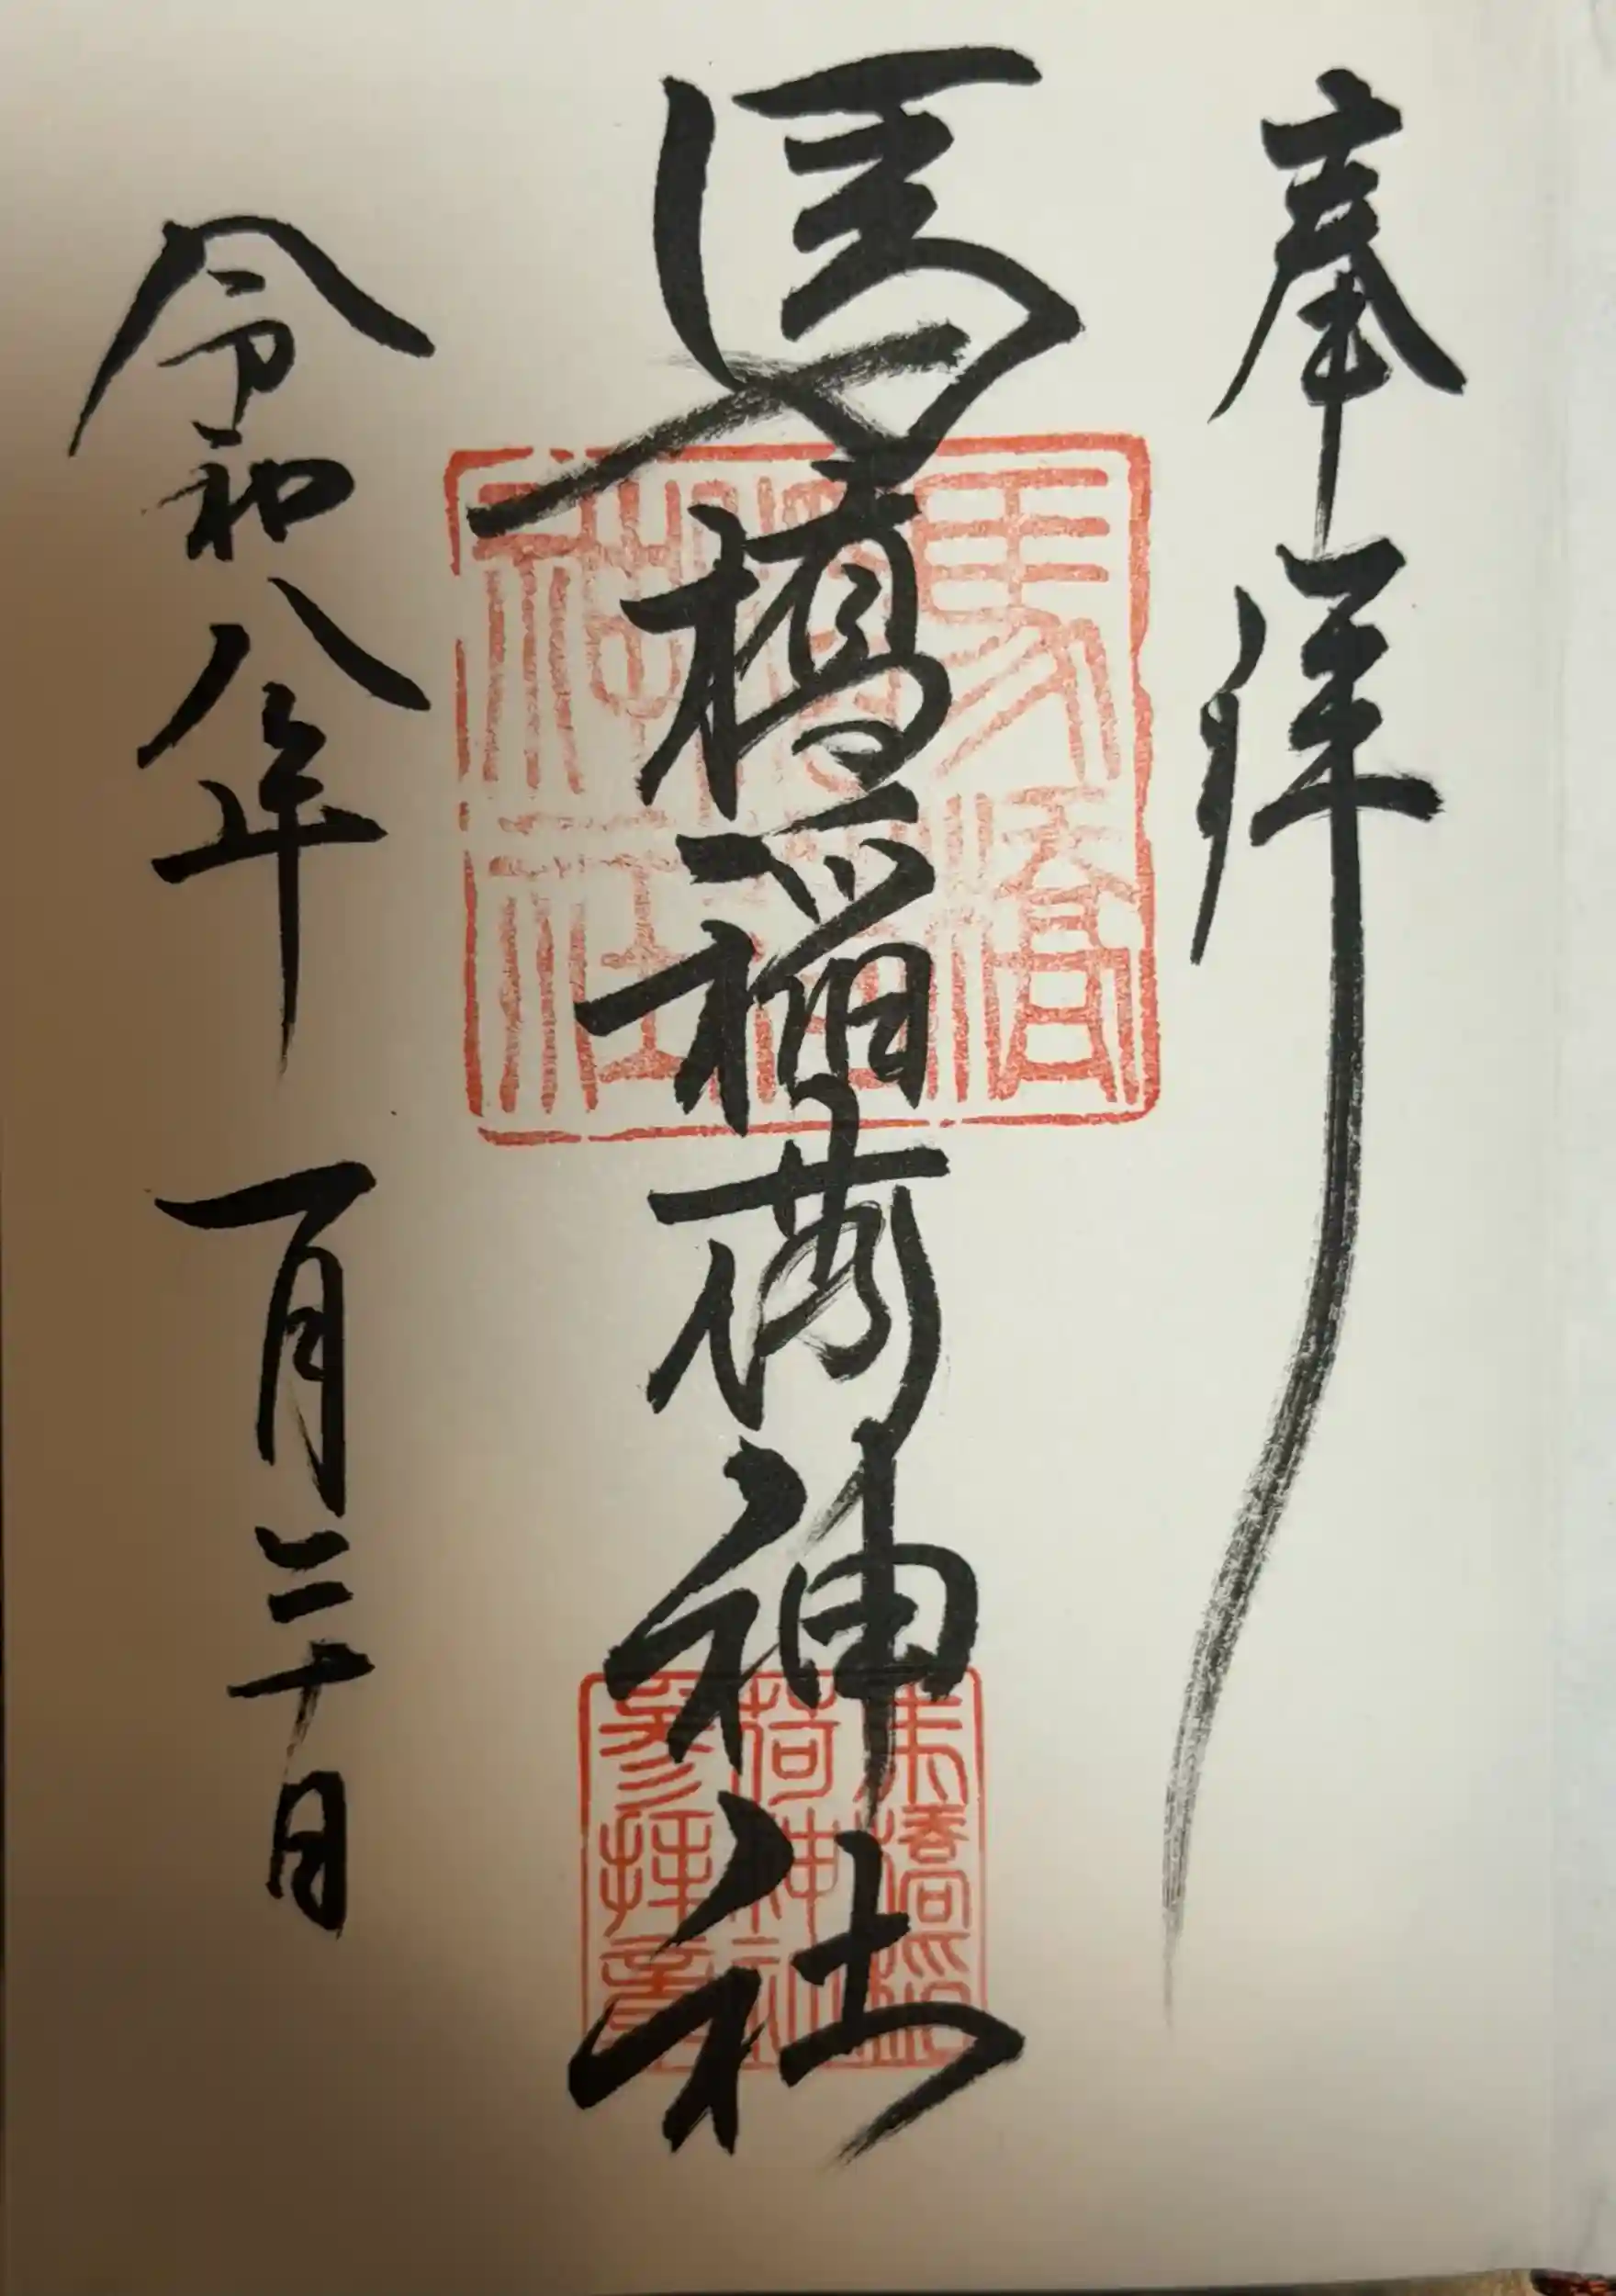 奉拝
馬橋稲荷神社
令和八年 一月二十日
馬橋
稲荷
神社
馬橋稲
荷神社
参拝章